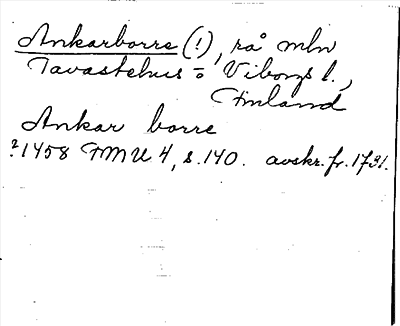 Ankarborre (!), rå mln
Tavastehus = Viborgs l.,
Finland
Ankar borre
?1458 FMU 4, s. 140. avskr. fr. 1731.